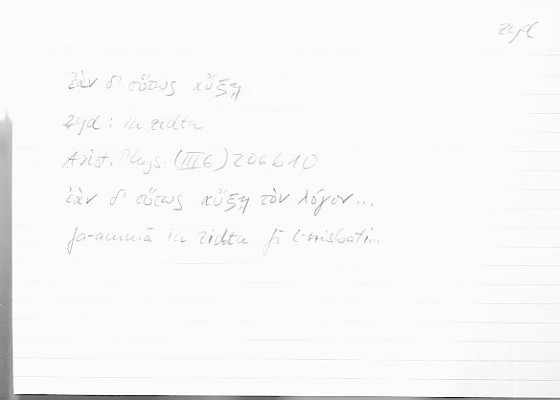 zyd
ἐὰν δ' οὕτως αὔξῃ
zyd : in zidta
Arist. Phys. (III 6) 206b10
ἐὰν δ' οὕτως αὔξῃ τὸν λόγον...
fa-ammā in zidta fī l-nisbati..